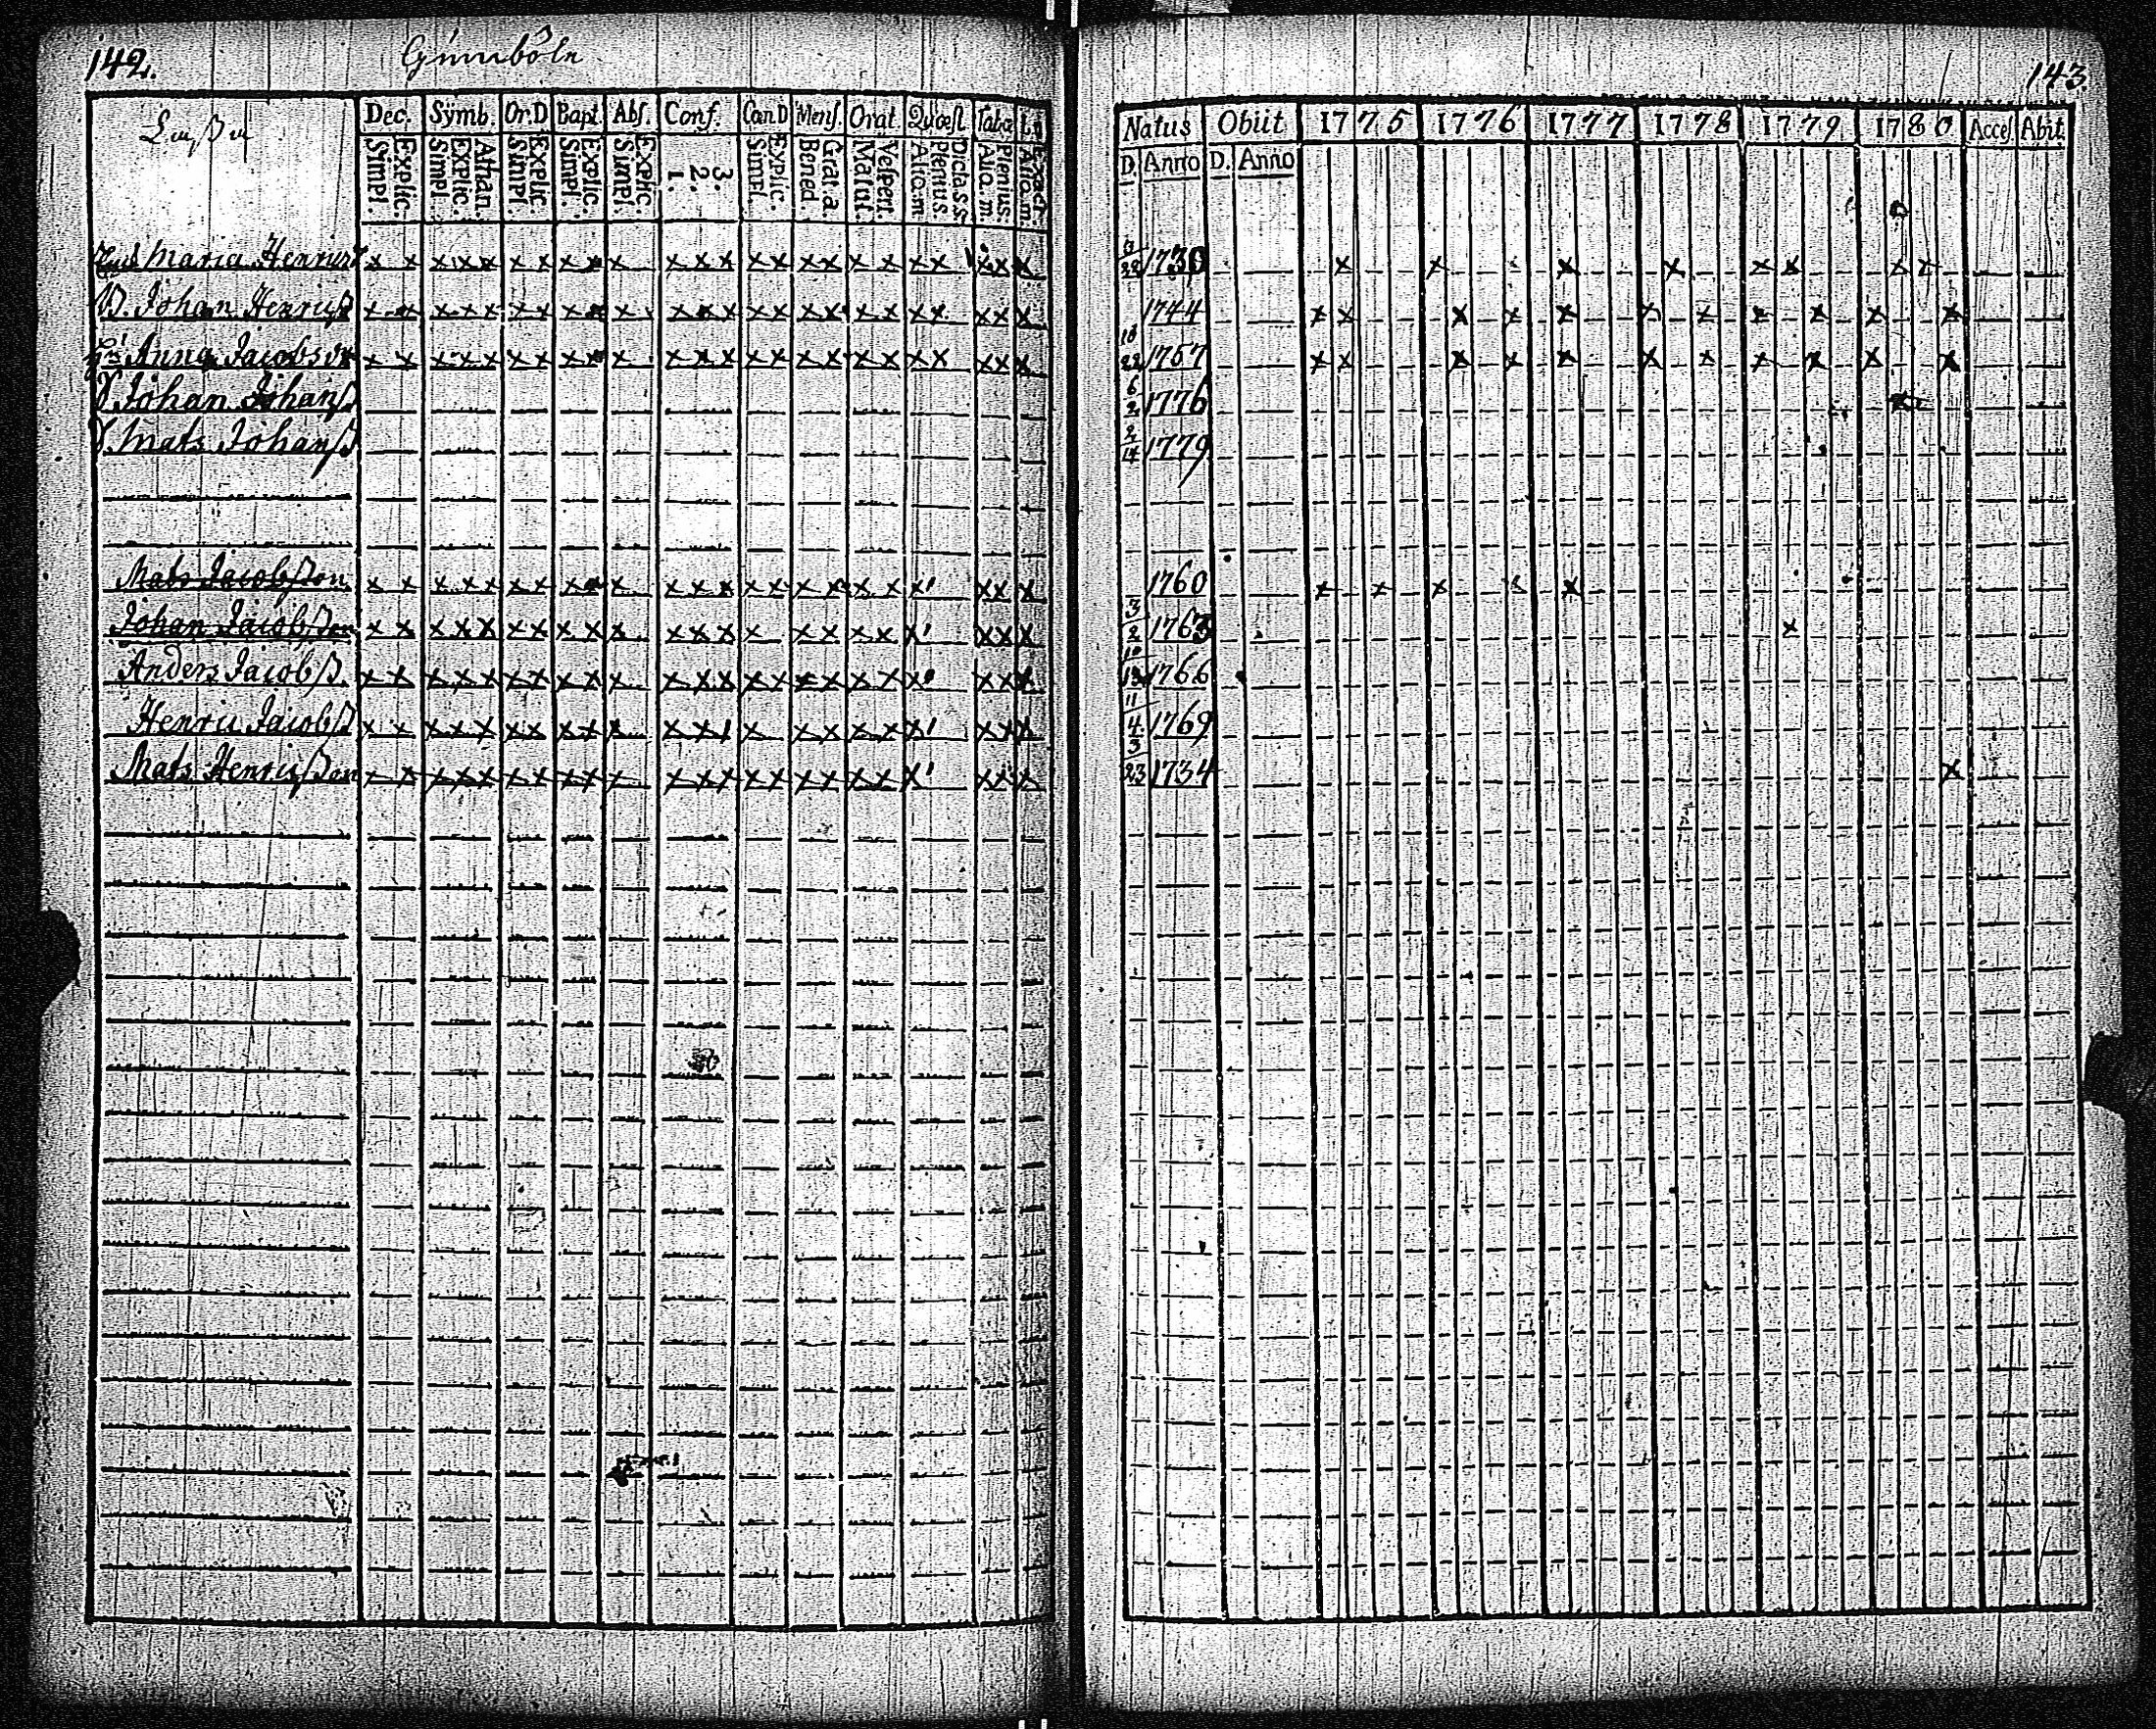 142.
Gümböle
143.
Dec. Symb. Or.D Bapt. Abs. Conf. Can.D Mens. Orat. Quæst. Tabæ
Simpl. Explic. Simpl. Explic. Athan. Simpl. Explic. Simpl. Explic. Simpl. Explic. 1. 2. 3. Simpl. Explic. Bened. Grat. a. Matut. Vespert. Alio. m. Plenius. Dicta. s.s. Alia. m. Plenius. Exact.
Natus Obiit 1775 1776 1777 1778 1779 1780 Acces. Abit.
D. Anno D. Anno
Maria Henrics 1730
B. Johan Henricß 1744
Anna Jacobsdr 18/22 1757
S. Johan Johanß 6/2 1776
S. Mats Johanß 2/4 1779
Mats Jacobsson 1760
Johan Jacobsson 3/2 1763
Anders Jacobß. 1766
Henric Jacobß 11/4 1769
Mats Henricsson 3/23 1734